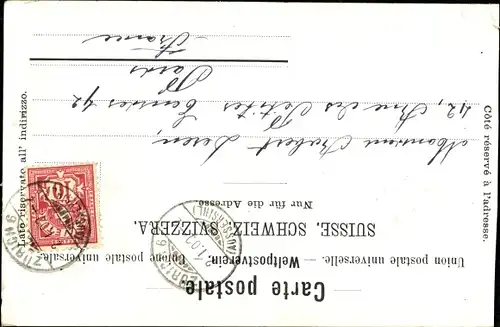 Carte postale
Union postale universelle. — Weltpostverein. — Unione postale universale.
SUISSE. SCHWEIZ. SVIZZERA.
Nur für die Adresse
Côté réservé à l'adresse.
Lato riservato all' indirizzo.
Monsieur Robert
42, Rue des Petites Ecuries 42
Paris
France
10
ZÜRICH 9
(AUSSERSIHL)